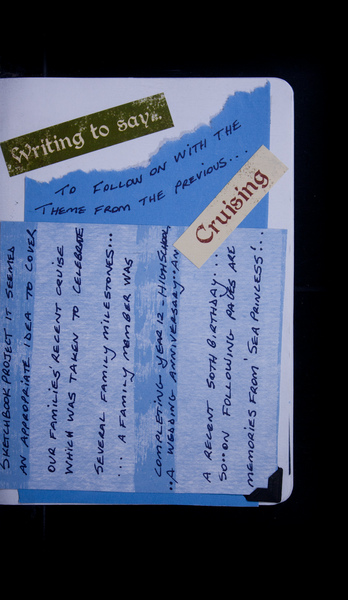 Writing to say..
TO FOLLOW ON WITH THE
THEME FROM THE PREVIOUS....
Cruising
SKETCHBOOK PROJECT IT SEEMED
AN APPROPRIATE IDEA TO COVER
OUR FAMILIES' RECENT CRUISE
WHICH WAS TAKEN TO CELEBRATE
SEVERAL FAMILY MILESTONES...
... A FAMILY MEMBER WAS
COMPLETING YEAR 12 - HIGH SCHOOL,
..A WEDDING ANNIVERSARY..AN
A RECENT 50TH BIRTHDAY...
SO..ON FOLLOWING PAGES ARE
MEMORIES FROM 'SEA PRINCESS'...